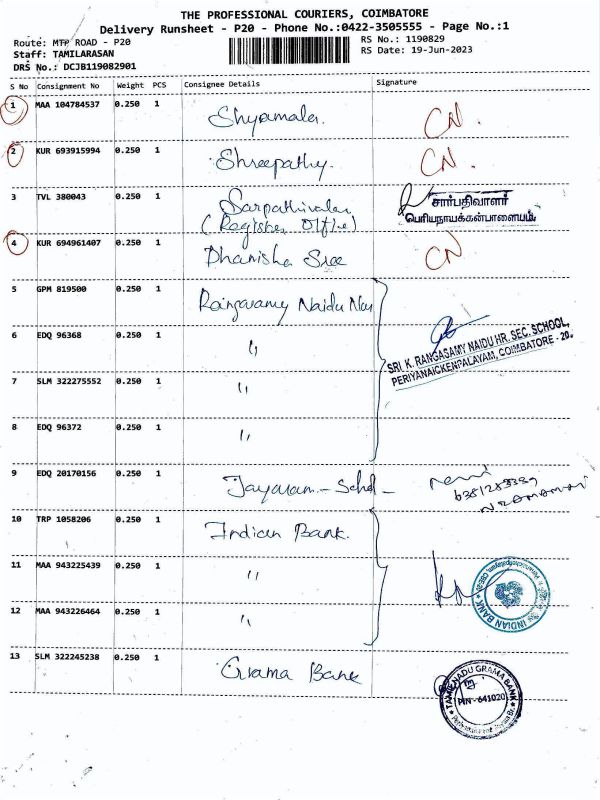 THE PROFESSIONAL COURIERS, COIMBATORE
Delivery Runsheet - P20 - Phone No.:0422-3505555 - Page No.:1
Route: MTP ROAD - P20 RS No.: 1190829
Staff: TAMILARASAN RS Date: 19-Jun-2023
DRS No.: DCJB119082901
S No Consignment No Weight PCS Consignee Details Signature
1 MAA 104784537 0.250 1 Shyamala. CN.
2 KUR 693915994 0.250 1 Shreepathy. CN.
3 TVL 380043 0.250 1 Sarpathivalar சார்பதிவாளர்
(Register Office) பெரியநாயக்கன்பாளையம்
4 KUR 694961407 0.250 1 Dhanisha Sree CN
5 GPM 819500 0.250 1 Rangasamy Naidu
6 EDQ 96368 0.250 1 "
SRI K. RANGASAMY NAIDU HR. SEC. SCHOOL,
PERIYANAICKENPALAYAM, COIMBATORE - 20.
7 SLM 322275552 0.250 1 "
8 EDQ 96372 0.250 1 "
9 EDQ 20170156 0.250 1 Jayaram - School -
10 TRP 1058206 0.250 1 Indian Bank.
11 MAA 943225439 0.250 1 "
INDIAN BANK
12 MAA 943226464 0.250 1 "
13 SLM 322245238 0.250 1 Grama Bank
TAMIL NADU GRAMA BANK
PIN - 641020